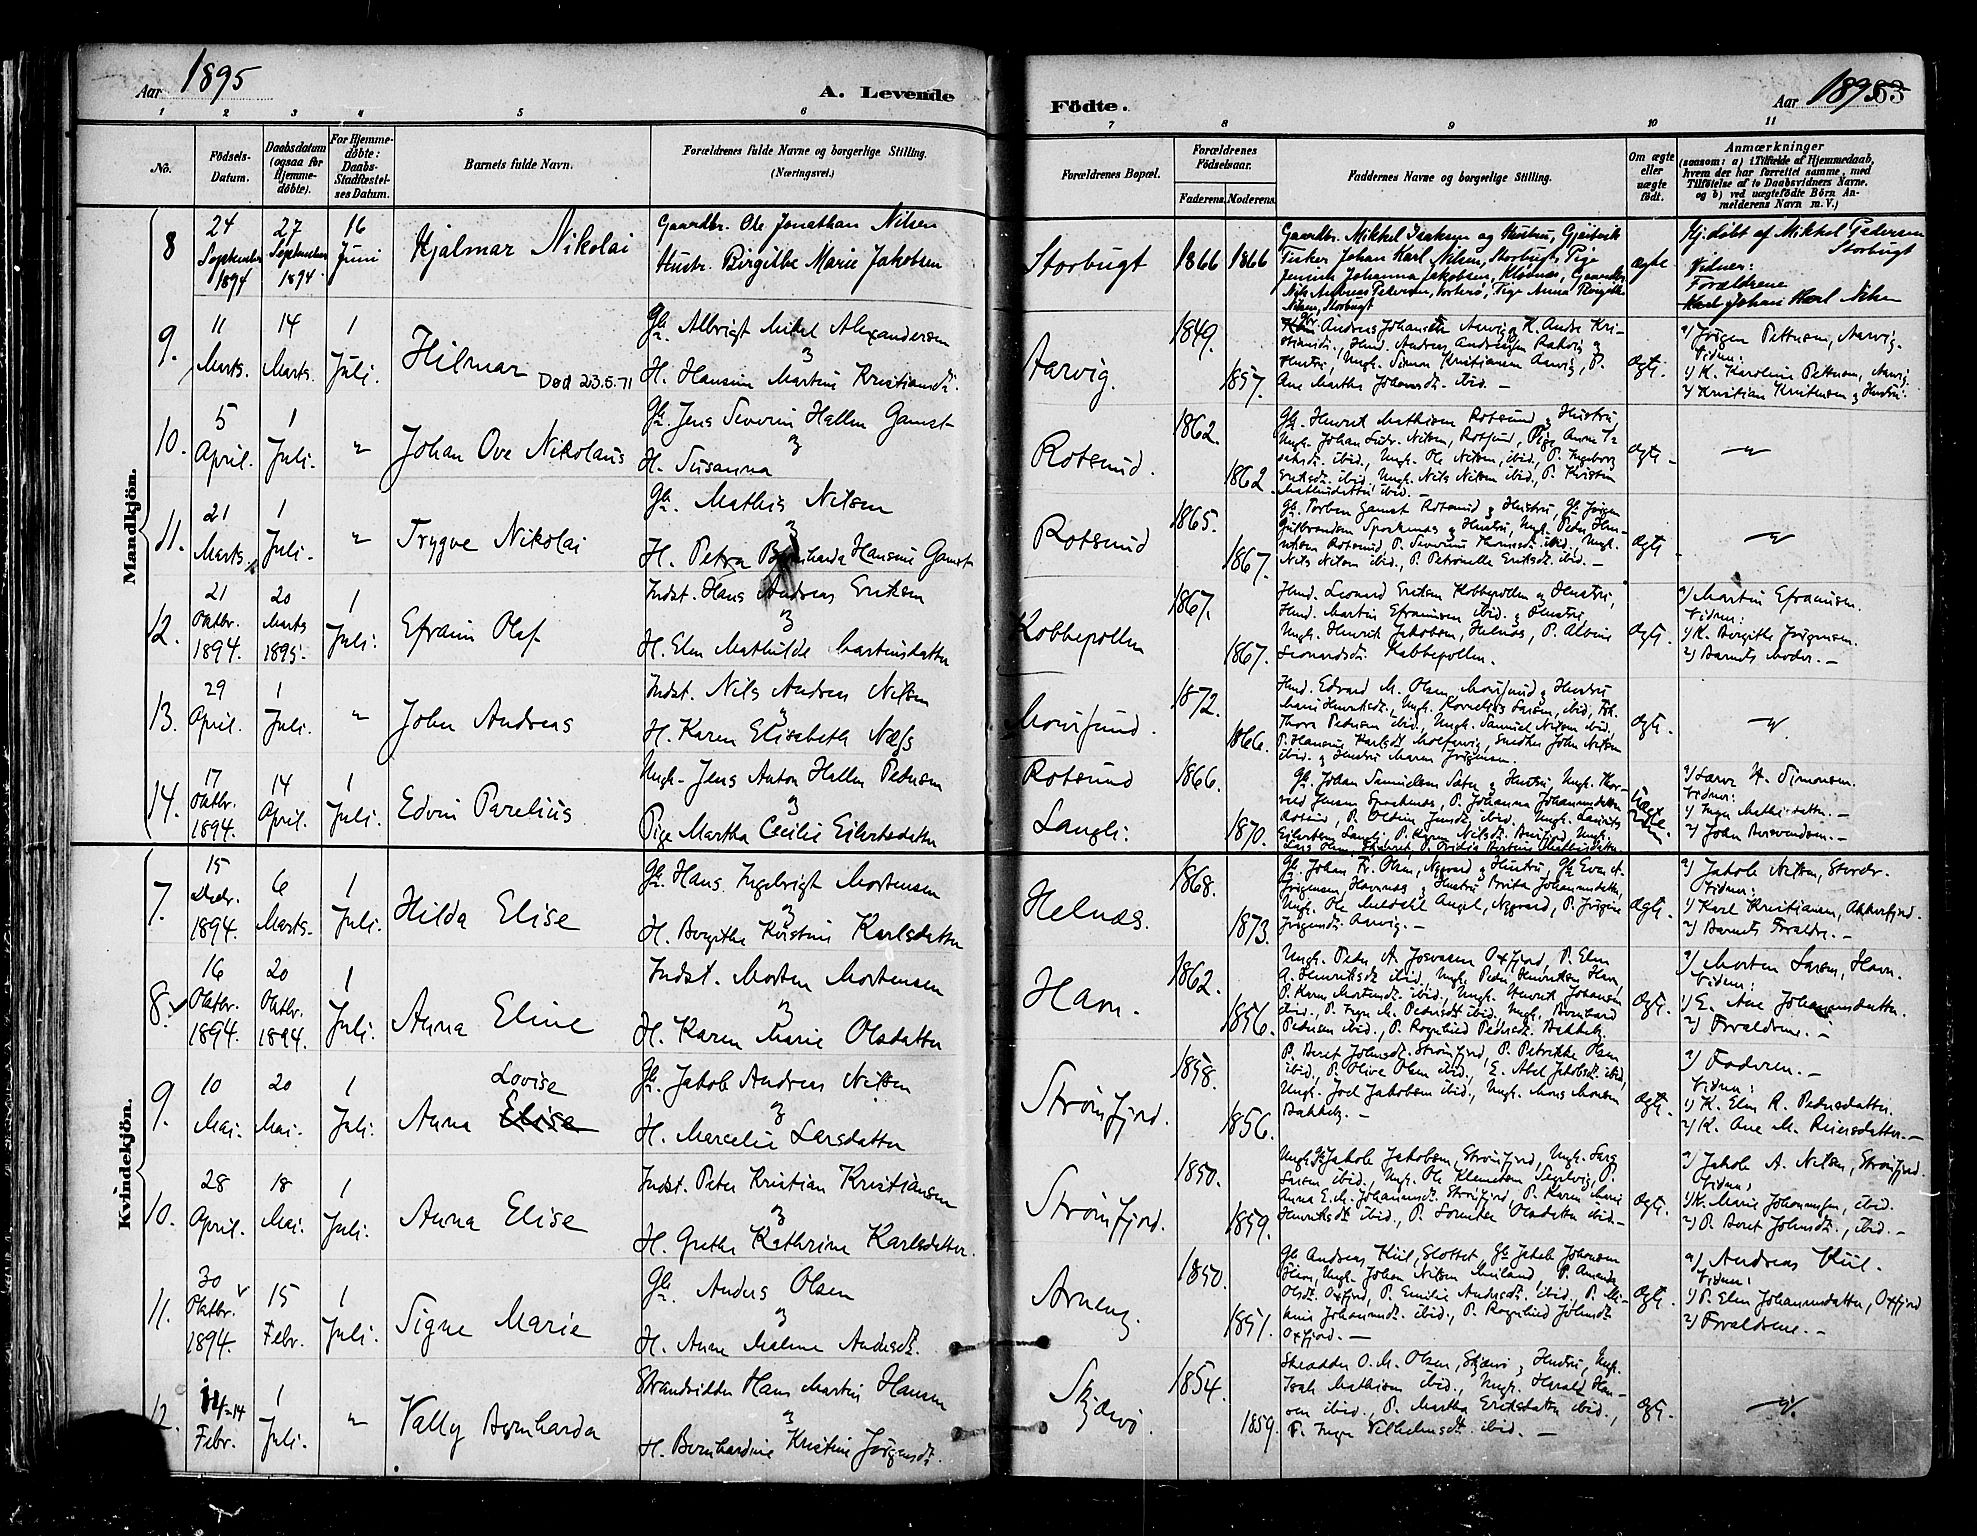 Aar 1895
A. Levende
1 2 3 4 5 6
No.
Födsels-Datum.
Daabsdatum (ogsaa for Hjemmedöbte).
For Hjemmedöbte: Daabs-Stadfæstelses Datum.
Barnets fulde Navn.
Forældrenes fulde Navne og borgerlige Stilling. (Næringsvei.)
Mandkjön.
8
24 September 1894
27 September 1894
16 Juni
Hjalmar Nikolai
Gaardbr. Ole Jonathan Nilsen
Hustr. Birgithe Marie Jakobsen
9.
11 Marts.
14 Marts.
1 Juli.
Hilmar Død 23.5.71
Gb. Albrigt Mikel Alexandersen
&
H. Hansine Martine Kristiansdt.
10.
5 April.
1 Juli.
"
Johan Ove Nikolaus
Gb. Jens Severin Hallen Gamst
&
H. Susanna
11.
21 Marts
1 Juli.
"
Trygve Nikolai
Gb. Mathis Nilsen
&
H. Petra Bernharda Hansine Gamst
12.
21 Oktbr. 1894.
20 Marts 1895.
1 Juli.
Efraim Olaf
Indst. Hans Andreas Eriksen
&
H. Elen Mathilde Martinsdatter
13.
29 April.
1 Juli.
"
John Andreas
Indst. Nils Andreas Nilsen
&
H. Karen Elisabeth Næss
14.
17 Oktbr. 1894.
14 April.
1 Juli.
Edvin Parelius
Ungk. Jens Anton Hallen Pedersen
&
Pige Martha Cecilie Eilertsdatter
Kvindekjön.
7.
15 Decbr. 1894.
6 Marts.
1 Juli.
Hilda Elise
Gb. Hans Ingebrigt Mortensen
&
H. Bergithe Kristine Karlsdatter
8.
16 Oktbr. 1894.
20 Oktbr. 1894.
1 Juli.
Anna Eline
Indst. Morten Mortensen
&
H. Karen Marie Olsdatter
9.
10 Mai.
20 Mai.
1 Juli.
Lovise
Anna Elise
Gb. Jakob Andreas Nilsen
&
H. Marcelie Larsdatter
10.
28 April.
18 Mai.
1 Juli.
Anna Elise
Indst. Peter Kristian Kristiansen
&
H. Grethe Kathrine Karlsdatter.
11.
30 Oktbr. 1894.
15 Febr.
1 Juli.
Signe Marie
Gb. Anders Olsen
&
H. Anne Malene Andersdt.
12.
14 Febr.
1 Juli.
"
Vally Bernharda
Strandsidder Hans Martin Hansen
&
H. Bernhardine Kristine Jørgensdt.
Födte.
Aar 1895 63
7 8 9 10 11
Forældrenes Bopæl.
Forældrenes Födselsaar.
Faderens. Moderens.
Faddernes Navne og borgerlige Stilling.
Om ægte eller uægte födt.
Anmærkninger
(saasom: a) i Tilfælde af Hjemmedaab, hvem der har forrettet samme, med Tilföielse af to Daabsvidners Navne. og b) ved uægtefödte Börn Anmelderens Navn m. V.)
Storbugt
1866 1866
Gaardbr. Mikkel Isaksen og Hustru, Gjøvik
Fisker Johan Karl Nilsen, Storbugt, Pige
Jensine Johanna Jakobsen, Klødnes, Gaardbr.
Nils Andreas Petersen, Vorterø, Pige Anna
Nilsen, Storbugt
ægte
Hj. døbt af Mikkel Pedersen
Storbugt
Vidner:
Forældrene
Karl Johan Karl Nilsen
Aarvig.
1849.
1857.
Andreas Johansen Aarvig, K. Andre Kristiansdt., Hmd. Andreas Andreasen Rakvig &
Hustru, Ungk. Simon Kristiansen Aarvig, P.
Ane Martha Johansdt. ibid. —
Ægte.
a) Jørgen Pettersen, Aarvig.
Vidner:
1) K. Karoline Pettersen, Aarvig.
2) Kristian Kristensen & Hustru.
Rotsund.
1862.
1862.
Gb. Henrik Mathisen Rotsund & Hustru,
Ungk. Johan Ludv. Nilsen, Rotsund, Pige Anne
ibid., Ungk. Ole Nilsen, ibid., P. Ingeborg
Eriksdt. ibid., Ungk. Nils Nilsen ibid., P. Kristen
Mathisdatter ibid. —
Ægte.
"
Rotsund
1865.
1867.
Gb. Torben Gamst Rotsund & Hustru, Gb. Jørgen
Gulbrandsen Spaaknæs & Hustru, Ungk. Peder Henriksen Rotsund, P. Severine Thomasdt. ibid., Ungk.
Nils Nilsen ibid., P. Petronelle Eriksdt. ibid. —
Ægte
"
Kobbepollen
1867.
1867.
Hmd. Leonard Eriksen Kobbepollen & Hustru,
Hmd. Martin Efraimsen ibid. & Hustru,
Ungk. Henrik Jakobsen, Helnæs, P. Albine
Leonardsdt. Kobbepollen.
Ægte.
a) Martin Efraimsen.
Vidner:
1) K. Bergithe Jørgensen.
2) Barnets Moder. —
Maursund.
1872.
1866.
Hmd. Edvard M. Olsen Maursund & Hustru
Marie Henriksdt., Ungk. Kornelius Larsen, ibid.,
Thora Pedersen ibid., Ungk. Samuel Nilsen ibid.,
P. Hansine Karlsdt., Snedker John Nilsen
ibid. & Hustru Maren Jørgensen.
Ægte.
"
Rotsund
Langli:
1866.
1870.
Gb. Johan Samuelsen & Hustru, Ungk.
Jensen Spaaknæs, P. Johanna Johannesdatter
Rotsund, ibid., Ungk. Laurits
Eilertsen Langli, P. Karen Nilsdt.
Uægte.
a) Lars H. Simonsen.
Vidner:
1) Inger Mathisdatter. —
2) John —
Helnæs.
1868.
1873.
Gb. Johan Fr. Olsen, Nygaard & Hustru, Gb. Even A.
Jørgensen, Havnnæs & Hustru Brita Johannesdatter,
Ungk. Ole Meldahl Angel, Nygaard, P. Jørgine
Jørgensdt. Aarvig. —
Ægte.
a) Jakob Nilsen, Storvr.
Vidner:
1) Karl Kristiansen, Akkarfjord.
2) Barnets Forældre. —
Havn.
1862.
1856.
Ungk. Peder A. Josvasen Oxfjord, P. Elen
A. Henriksdt. ibid., Ungk. Peder Henriksen Havn,
P. Karen Mortensdt. ibid., Ungk. Henrik Johansen
ibid., P. Inger M. Pedersdt. ibid., Ungk. Bernhard
Pedersen ibid., P. Ragnhild Pedersdt. Bakkeby.
Ægte.
a) Morten Larsen, Havn.
Vidner:
1) E. Ane Johannesdatter.
2) Forældrene. —
Strømfjord.
1858.
1856.
P. Beret Johnsdt. Strømfjord, P. Petrikke Olsen
ibid., P. Olive Olsen ibid., E. Abel Jakobsdt. ibid.,
Ungk. Joel Jakobsen ibid., Ungk. Mons Monsen
Bakkeby. —
Ægte.
a) Faderen. —
Vidner:
1) K. Elen R. Pedersdatter.
2) K. Ane M. Reiersdatter. —
Strømfjord.
1850.
1859.
Ungk. Jakob Jakobsen, Strømfjord, Ungk. Lars
Larsen ibid., Ungk. Ole Klemetsen Segelvig, P.
Anna E. M. Johannesdt. Strømfjord, P. Karen Marie
Henriksdt. ibid., P. Lorentse Olsdatter ibid. —
Ægte.
a) Jakob A. Nilsen, Strømfjord.
Vidner:
1) K. Marie Johannesen, ibid.
2) P. Beret Johnsdt., ibid. —
Arneng.
1850.
1851.
Gb. Andreas Kiil, Slottet, Gb. Jakob Johansen
Havn, Ungk. Johan Nilsen Meiland, P. Amanda
Olsdt. Oxfjord, P. Emilie Andersdt. ibid., P.
Johannesdt. ibid., P. Ragnhild Johnsdt.
Oxfjord. —
Ægte.
a) Andreas Kiil.
Vidner:
1) P. Elen Johannesdatter, Oxfjord
2) Forældrene. —
Skjærvø.
1854.
1859.
Skrædder O. M. Olsen, Skjærvø & Hustru, Ungk.
Isak Mathisen ibid., Ungk. Harald Hansen ibid., P. Martha Eriksdatter ibid.,
P. Inger Vilhelmsdt. ibid. —
Ægte.
"